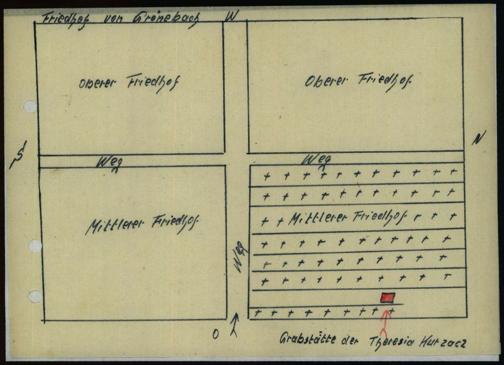 Friedhof von Grönebach W
Oberer Friedhof
Oberer Friedhof
S
N
Weg
Weg
Mittlerer Friedhof
Mittlerer Friedhof
Weg
O
Grabstätte der Theresia Kurzacz